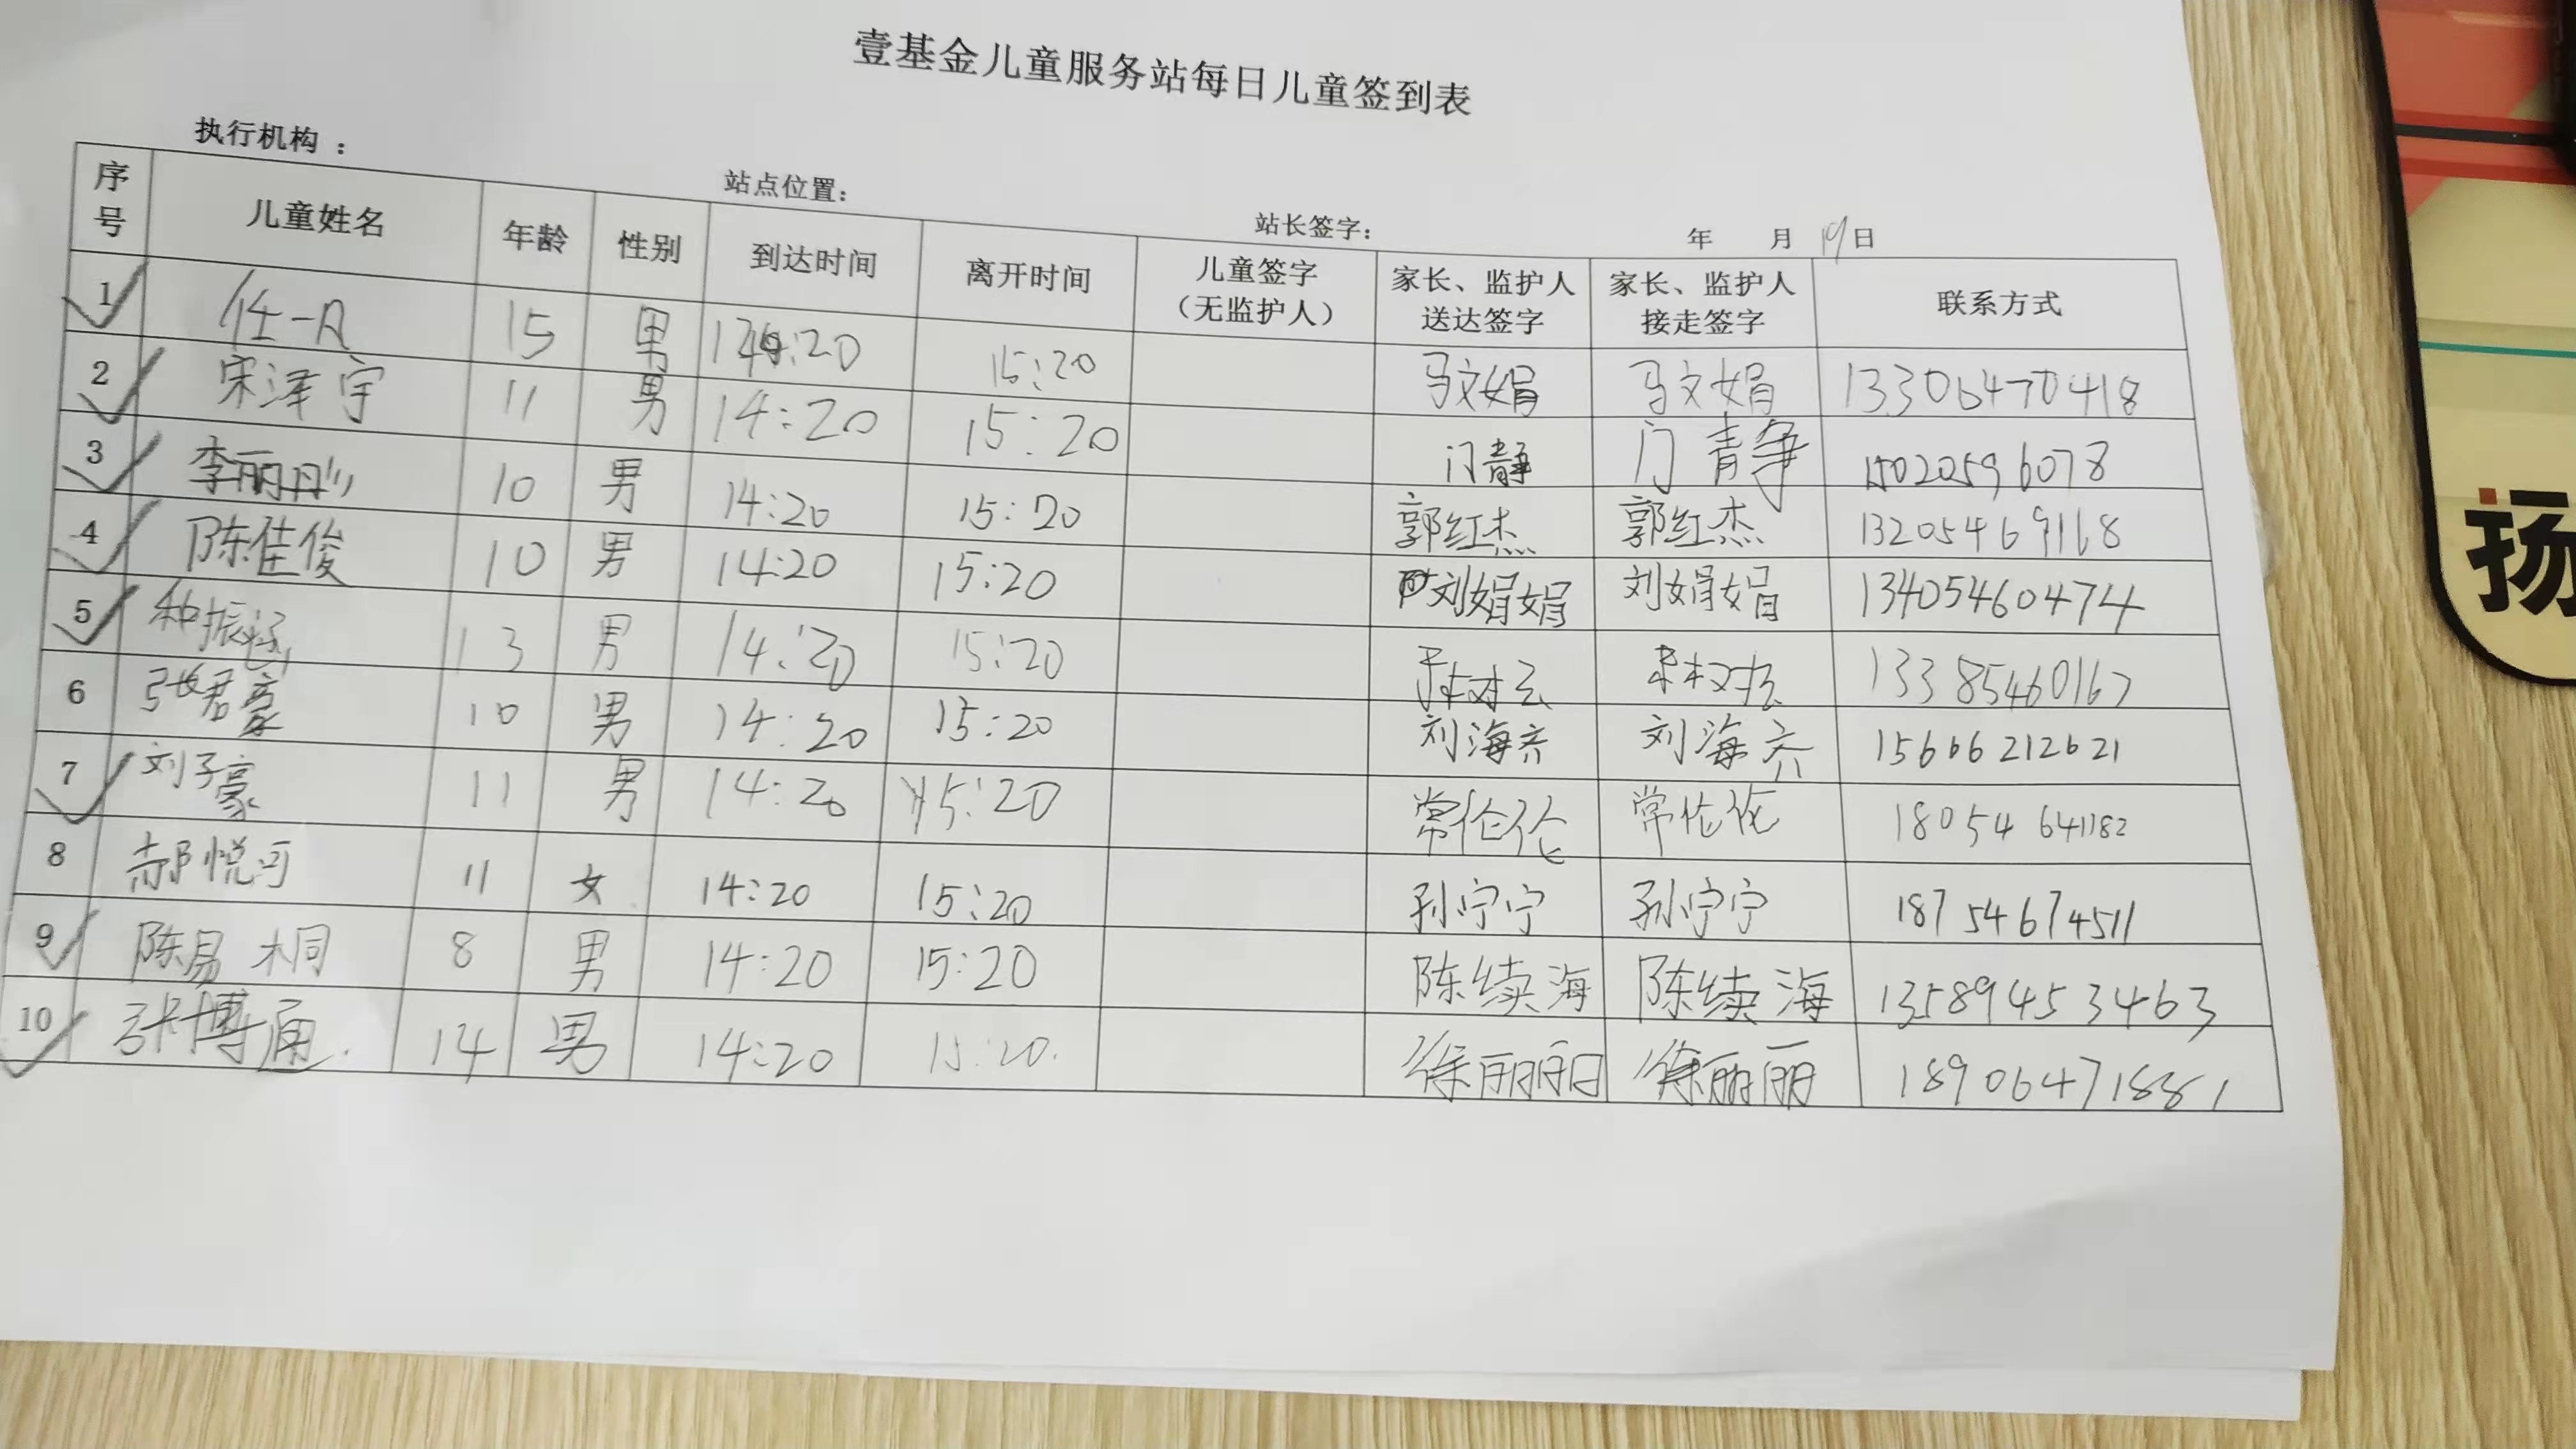 壹基金儿童服务站每日儿童签到表
执行机构： 站点位置： 站长签字： 年 月 19日
序号 儿童姓名 年龄 性别 到达时间 离开时间 儿童签字（无监护人） 家长、监护人送达签字 家长、监护人接走签字 联系方式
1 任一 15 男 14:20 15:20 马文娟 马文娟 13306470418
2 宋泽宇 11 男 14:20 15:20 门静 门静 15020596078
3 李丽 10 男 14:20 15:20 郭红杰 郭红杰 13205469168
4 陈佳俊 10 男 14:20 15:20 刘娟娟 刘娟娟 13405460474
5 种振涵 13 男 14:20 15:20 13385460167
6 张君豪 10 男 14:20 15:20 刘海齐 刘海齐 15666212621
7 刘子豪 11 男 14:20 15:20 常伦伦 常伦伦 18054641182
8 郝悦可 11 女 14:20 15:20 孙宁宁 孙宁宁 18754674511
9 陈易桐 8 男 14:20 15:20 陈续海 陈续海 13589453463
10 张博涵 14 男 14:20 15:20. 徐丽丽 徐丽丽 18906471881
扬